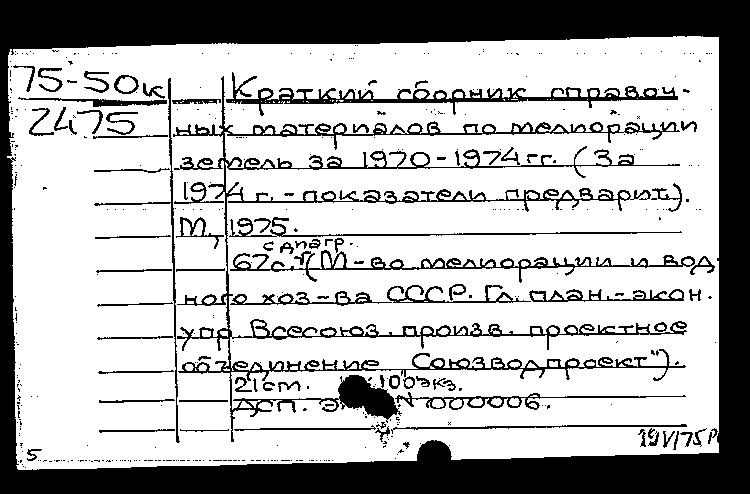 75-50к
2475
Краткий сборник справоч-
ных материалов по мелиорации
земель за 1970-1974 гг. (За
1974 г. - показатели предварит.).
М., 1975.
с диагр.
67с. (М-во мелиорации и вод-
ного хоз-ва СССР. Гл. план.-экон.
упр. Всесоюз. произв. проектное
объединение "Союзводпроект").
21 см. 100 экз.
ДСП. N 000006.
19V/75
5